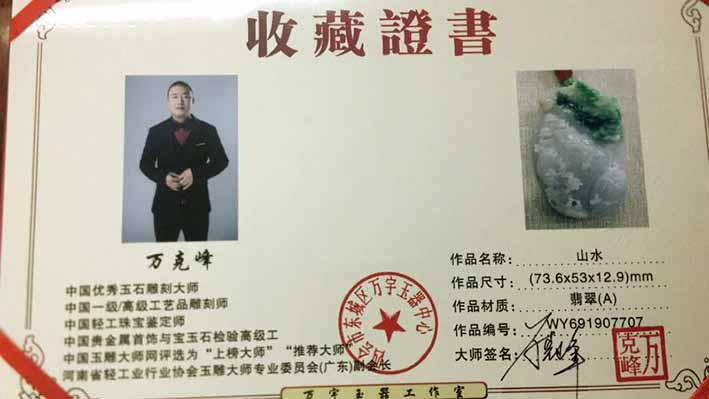 收藏證書
万克峰
中国优秀玉石雕刻大师
中国一级/高级工艺品雕刻师
中国轻工珠宝鉴定师
中国贵金属首饰与宝玉石检验高级工
中国玉雕大师网评选为“上榜大师”“推荐大师”
河南省轻工业行业协会玉雕大师专业委员会(广东)副会长
作品名称: 山水
作品尺寸: (73.6x53x12.9)mm
作品材质: 翡翠(A)
作品编号: WY691907707
大师签名: 万克峰
会市东城区万宇玉器中心
万克峰
万宇玉器工作室